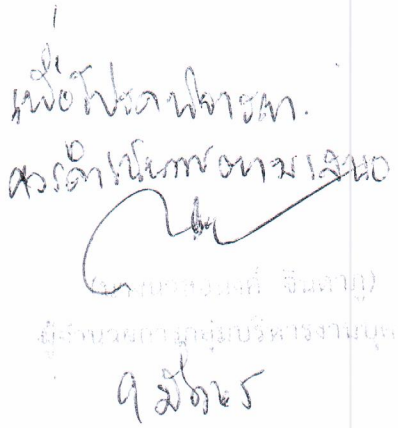 เพื่อโปรดพิจารณา.
ควรดำเนินการตามเสนอ
จินดาภู)
ผู้อำนวยการกลุ่มบริหารงานบุค
9 มี.ค. 65